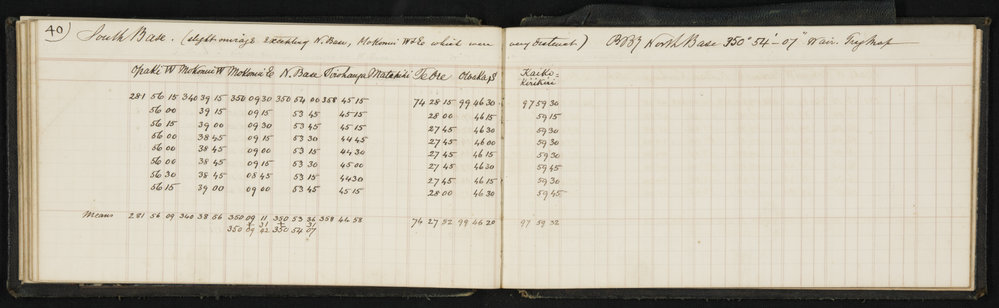 40
South Base. (slight mirage excepting N. Base, MoKonui W & E which were very distinct) North Base 350° 54' - 07" Wair. Trig Map
Opaki W MoKonui W MoKonui E N. Base Tirohanga Matahiki Te Ore Otaraia S Kaiko-
kirikiri
281 56 15 340 39 15 350 09 30 350 54 00 358 45 15 74 28 15 99 46 30 97 59 30
56 00 39 15 09 15 53 45 45 15 28 00 46 15 59 15
56 15 39 00 09 30 53 45 45 15 27 45 46 30 59 30
56 00 38 45 09 15 53 30 44 45 27 45 46 00 59 30
56 00 38 45 09 00 53 15 44 30 27 45 46 15 59 30
56 00 38 45 09 15 53 30 45 00 27 45 46 30 59 45
56 30 38 45 08 45 53 15 44 30 27 45 46 15 59 30
56 15 39 00 09 00 53 45 45 15 28 00 46 30 59 45
Means 281 56 09 340 38 56 350 09 11 350 53 36 358 44 58 74 27 52 99 46 20 97 59 32
+ 31 + 31
350 09 42 350 54 07